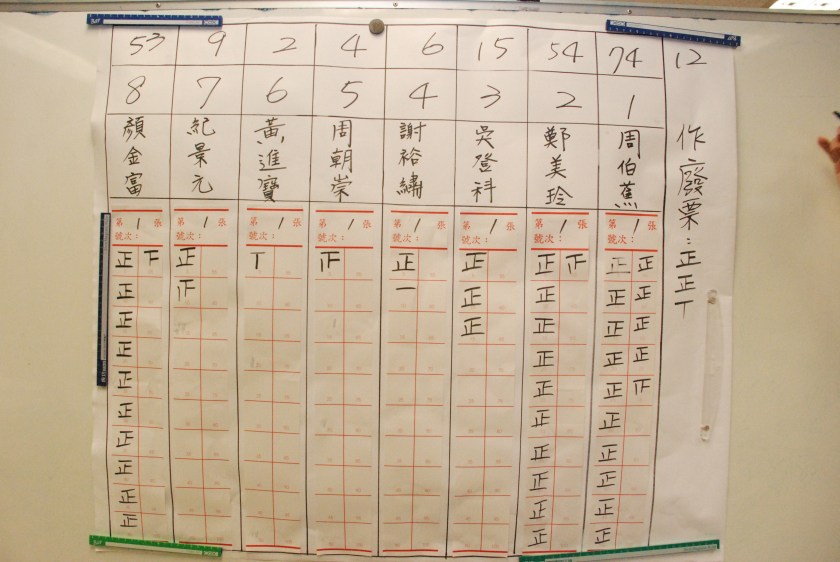 53 9 2 4 6 15 54 74 12
8 7 6 5 4 3 2 1
顏金富
紀景元
黃進寶
周朝崇
謝裕繡
吳登科
鄭美玲
周伯蕉
作廢票：正正丅
第1張 第1張 第1張 第1張 第1張 第1張 第1張 第1張
號次： 號次： 號次： 號次： 號次： 號次： 號次： 號次：
正 下 正 丅 正 正 正 正 正 正
正 正 一 正 正 正 正
正 正 正 正 正
正 正 正 正
正 正 正
正 正 正
正 正 正
正 正 正
正 正 正
正 正 正